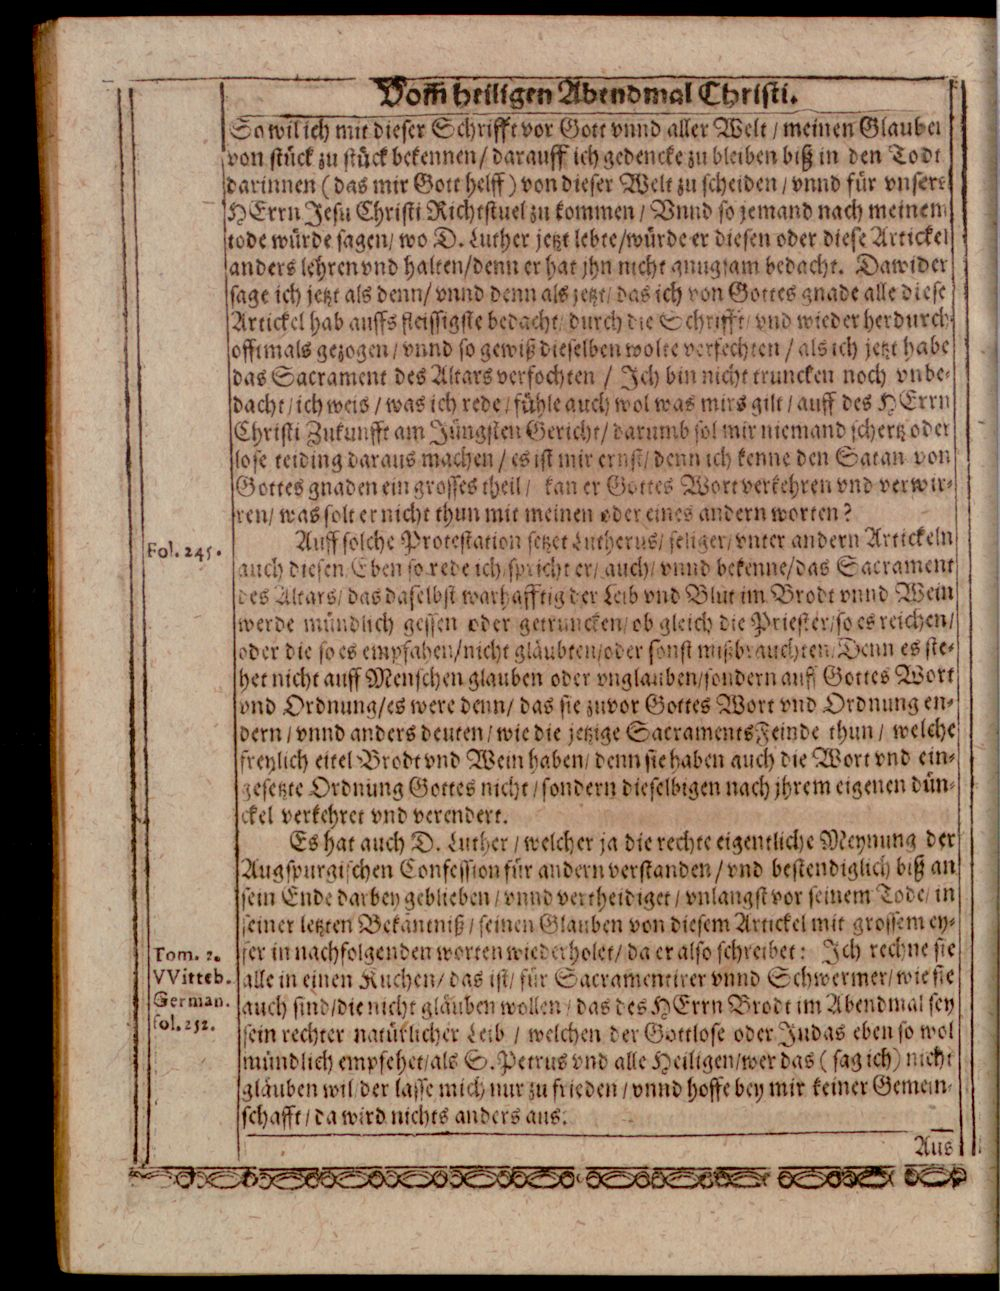 Vom heiligen Abendmal Christi.
So wil ich mit dieser Schrifft vor Gott vnnd aller Welt / meinen Glauben
von stück zu stück bekennen / darauff ich gedencke zu bleiben biß in den Todt
darinnen (das mir Gott helff) von dieser Welt zu scheiden / vnnd für vnsers
HErrn Jesu Christi Richtstuel zu kommen / Vnnd so jemand nach meinem
tode würde sagen / wo D. Luther jetzt lebte / würde er diesen oder diese Artickel
anders lehren vnd halten / denn er hat jhn nicht gnugsam bedacht. Dawider
sage ich jetzt als denn / vnnd denn als jetzt / das ich von Gottes gnade alle diese
Artickel hab auffs fleissigste bedacht / durch die Schrifft / vnd wieder herdurch
offtmals gezogen / vnnd so gewiß dieselben wolte verfechten / als ich jetzt habe
das Sacrament des Altars verfochten / Ich bin nicht truncken noch vnbe-
dacht / ich weis / was ich rede / fühle auch wol was mirs gilt / auff des HErrn
Christi Zukunfft am Jüngsten Gericht / darumb sol mir niemand schertz oder
lose teiding daraus machen / es ist mir ernst / denn ich kenne den Satan von
Gottes gnaden ein grosses theil / kan er Gottes Wort verkehren vnd verwir-
ren / was solt er nicht thun mit meinen oder eines andern worten?
Fol. 245.
Auff solche Protestation setzet Lutherus / seliger / vnter andern Artickeln
auch diesen Eben so rede ich / spricht er / auch / vnnd bekenne / das Sacrament
des Altars / das daselbst warhafftig der Leib vnd Blut im Brodt vnnd Wein
werde mündlich gessen oder getruncken / ob gleich die Priester / so es reichen /
oder die so es empfahen / nicht gläubten / oder sonst mißbrauchten / Denn es ste-
het nicht auff Menschen glauben oder vnglauben / sondern auff Gottes Wort
vnd Ordnung / es were denn / das sie zuvor Gottes Wort vnd Ordnung en-
dern / vnnd anders deuten / wie die jetzige Sacraments Feinde thun / welche
freylich eitel Brodt vnd Wein haben / denn sie haben auch die Wort vnd ein-
gesetzte Ordnung Gottes nicht / sondern dieselbigen nach jhrem eigenen dün-
ckel verkehret vnd verendert.
Es hat auch D. Luther / welcher ja die rechte eigentliche Meynung der
Augspurgischen Confession für andern verstanden / vnd bestendiglich biß an
sein Ende darbey geblieben / vnnd vertheidiget / vnlangst vor seinem Tode / in
seiner letzten Bekäntniß / seinen Glauben von diesem Artickel mit grossem ey-
fer in nachfolgenden worten wiederholet / da er also schreibet: Ich rechne sie
alle in einen Kuchen / das ist / für Sacramentirer vnnd Schwermer / wie sie
auch sind / die nicht gläuben wollen / das des HErrn Brodt im Abendmal sey
sein rechter natürlicher Leib / welchen der Gottlose oder Judas eben so wol
mündlich empfehet / als S. Petrus vnd alle Heiligen / wer das (sag ich) nicht
gläuben wil / der lasse mich nur zu frieden / vnnd hoffe bey mir keiner Gemein-
schafft / da wird nichts anders aus.
Tom. 2.
VVitteb.
German.
fol. 252.
Aus